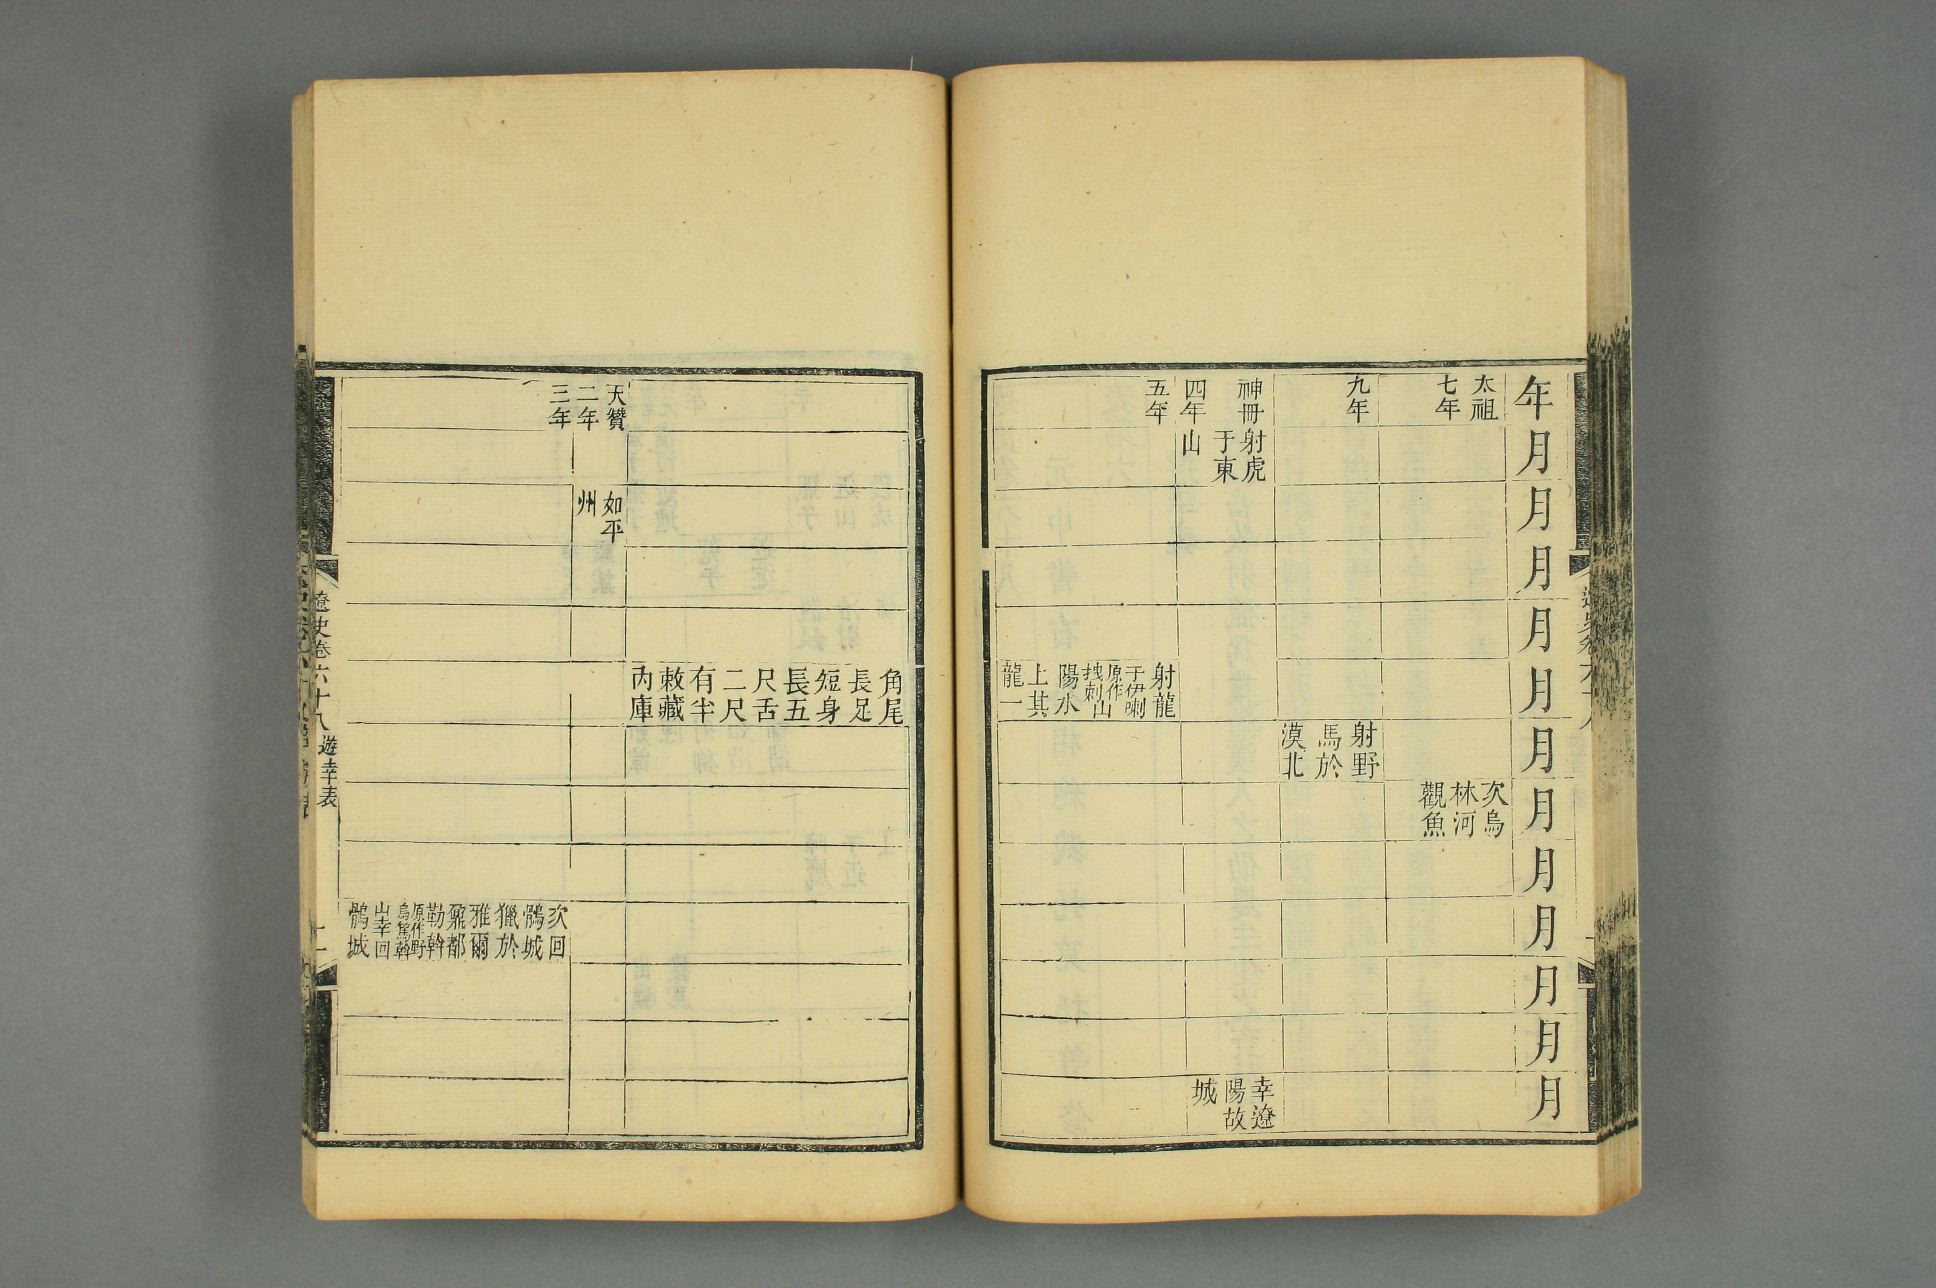 年
月
月
月
月
月
月
月
月
月
月
月
月
太祖
七年
次烏
林河
觀魚
九年
射野
馬於
漠北
神冊
四年
射虎
于東
山
幸遼
陽故
城
五年
射龍
于伊喇
原作
拽剌山
陽水
上其
龍一
角尾
長足
短身
長五
尺舌
二尺
有半
敕藏
內庫
天贊
二年
如平
州
三年
次回
鶻城
獵於
雅爾
鼐都
勒斡
原作野
烏篤斡
山幸回
鶻城
遼史卷六十八 遊幸表
二